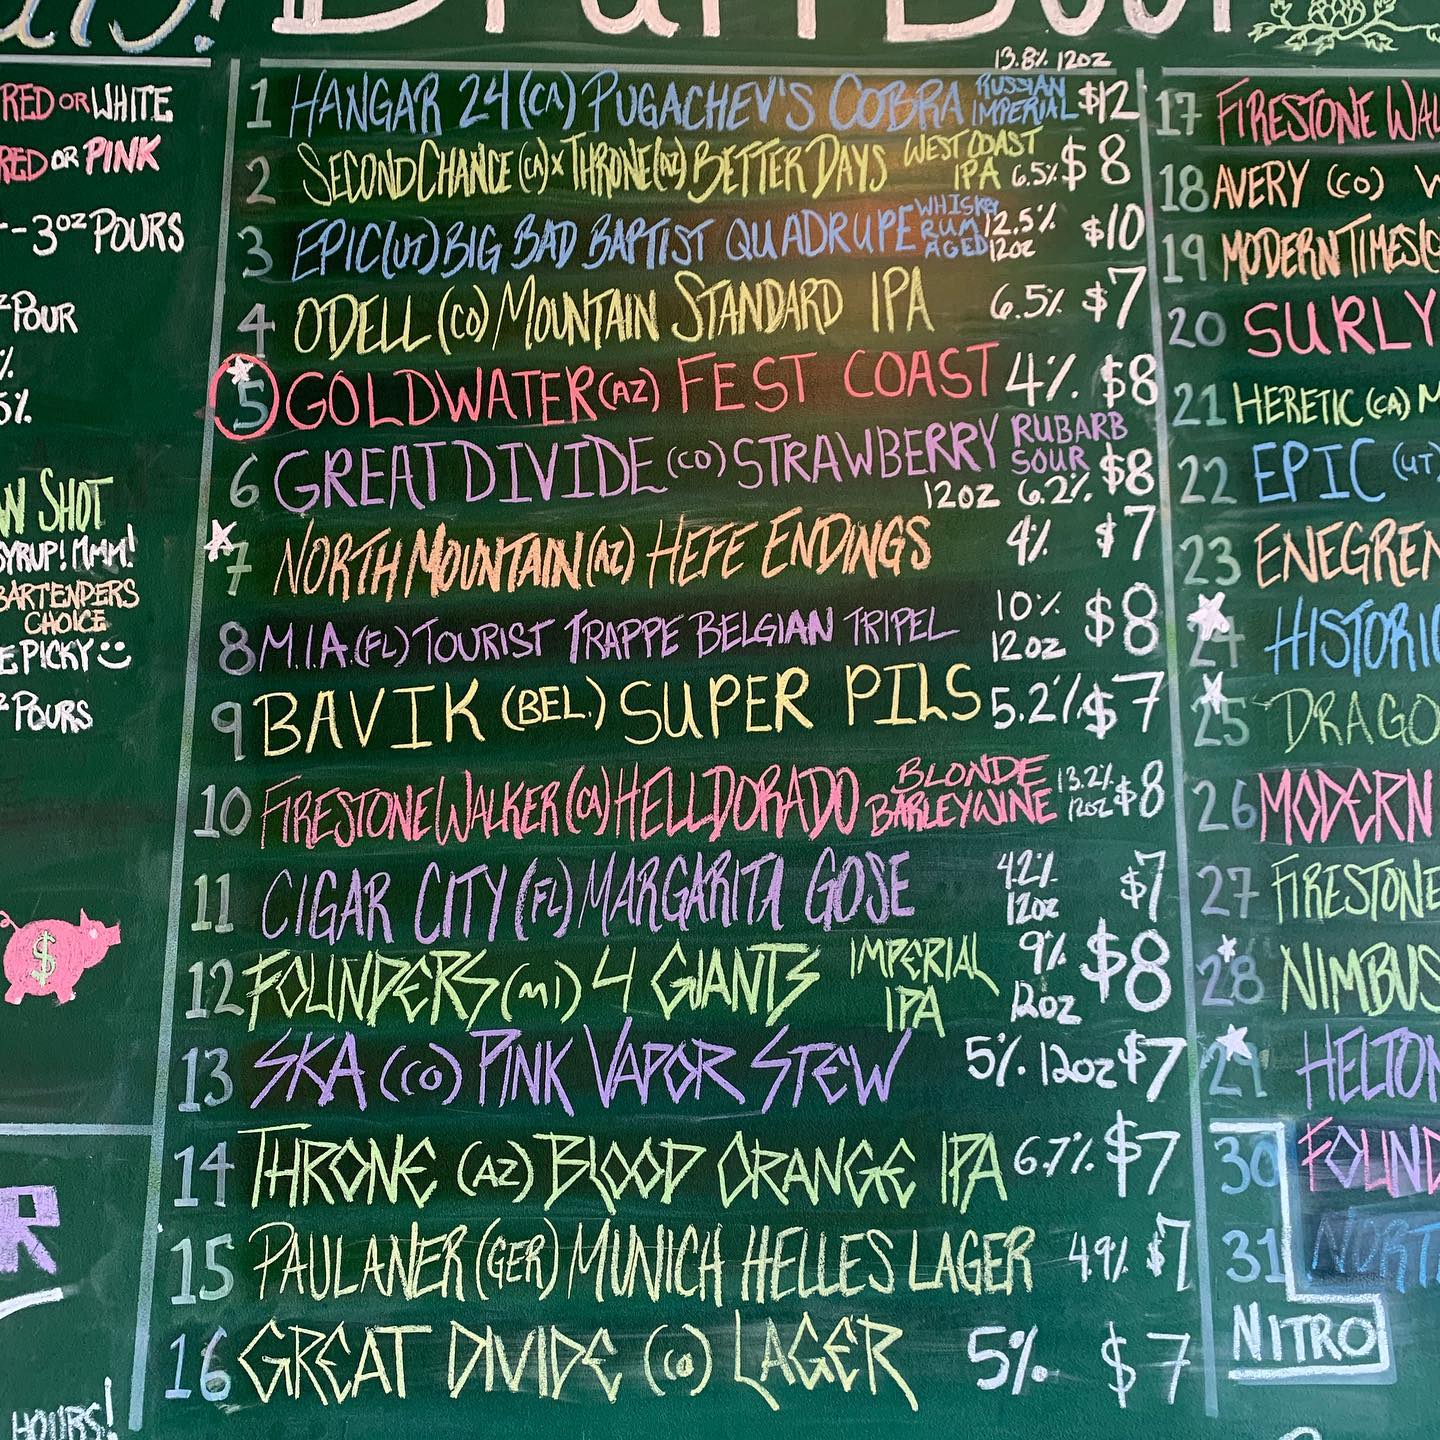 Draft Beer
RED OR WHITE
RED OR PINK
--3oz POURS
POUR
%
5%
SHOT
SYRUP! MMM!
BARTENDERS
CHOICE
E PICKY
POURS
$
R
HOURS!
13.8% 12oz
1 HANGAR 24 (CA) PUGACHEV'S COBRA RUSSIAN IMPERIAL $12
2 SECOND CHANCE (CA) x THRONE (AZ) BETTER DAYS WEST COAST IPA 6.5% $8
3 EPIC (UT) BIG BAD BAPTIST QUADRUPE WHISKEY RUM AGED 12.5% 12oz $10
4 ODELL (CO) MOUNTAIN STANDARD IPA 6.5% $7
5 GOLDWATER (AZ) FEST COAST 4% $8
6 GREAT DIVIDE (CO) STRAWBERRY RUBARB SOUR 12OZ 6.2% $8
7 NORTH MOUNTAIN (AZ) HEFE ENDINGS 4% $7
8 M.I.A. (FL) TOURIST TRAPPE BELGIAN TRIPEL 10% 12oz $8
9 BAVIK (BEL.) SUPER PILS 5.2% $7
10 FIRESTONE WALKER (CA) HELLDORADO BLONDE BARLEYWINE 13.2% 12oz $8
11 CIGAR CITY (FL) MARGARITA GOSE 4.2% 12oz $7
12 FOUNDERS (MI) 4 GIANTS IMPERIAL IPA 9% 12oz $8
13 SKA (CO) PINK VAPOR STEW 5% 12oz $7
14 THRONE (AZ) BLOOD ORANGE IPA 6.7% $7
15 PAULANER (GER) MUNICH HELLES LAGER 4.9% $7
16 GREAT DIVIDE (CO) LAGER 5% $7
17 FIRESTONE WAL
18 AVERY (CO) W
19 MODERN TIMES (
20 SURLY
21 HERETIC (CA) M
22 EPIC (UT)
23 ENEGREN
24 HISTORIC
25 DRAGO
26 MODERN
27 FIRESTONE
28 NIMBUS
29 HELTON
30 FOUND
31 NORT
NITRO